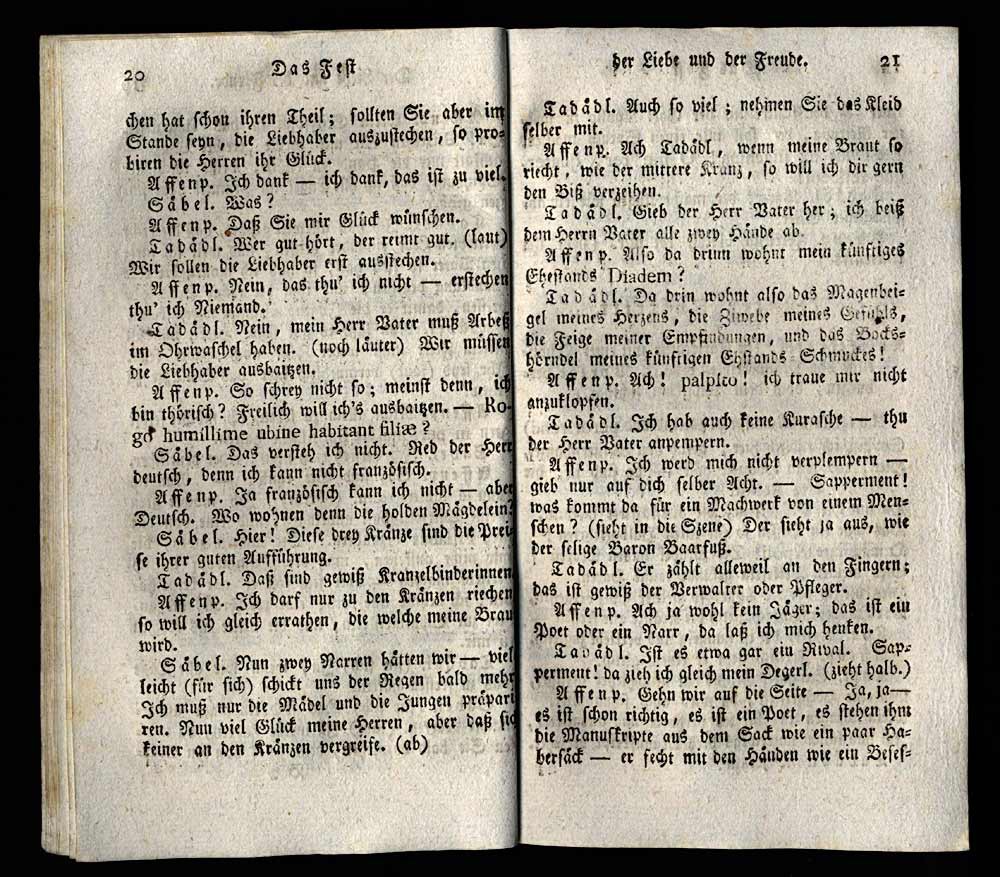 20 Das Fest
chen hat schon ihren Theil; sollten Sie aber im
Stande seyn, die Liebhaber auszustechen, so pro-
biren die Herren ihr Glück.
Affenp. Ich dank — ich dank, das ist zu viel.
Säbel. Was?
Affenp. Daß Sie mir Glück wünschen.
Tadädl. Wer gut hört, der reimt gut. (laut)
Wir sollen die Liebhaber erst ausstechen.
Affenp. Nein, das thu' ich nicht — erstechen
thu' ich Niemand.
Tadädl. Nein, mein Herr Vater muß Arbeß
im Ohrwaschel haben. (noch läuter) Wir müssen
die Liebhaber ausbaitzen.
Affenp. So schrey nicht so; meinst denn, ich
bin thörisch? Freilich will ich's ausbaitzen. — Ro-
go humillime ubine habitant filiæ?
Säbel. Das versteh ich nicht. Red der Herr
deutsch, denn ich kann nicht französisch.
Affenp. Ja französisch kann ich nicht — aber
Deutsch. Wo wohnen denn die holden Mägdelein?
Säbel. Hier! Diese drey Kränze sind die Prei-
se ihrer guten Aufführung.
Tadädl. Daß sind gewiß Kranzelbinderinnen
Affenp. Ich darf nur zu den Kränzen riechen
so will ich gleich errathen, die welche meine Brau
wird.
Säbel. Nun zwey Narren hätten wir — viel
leicht (für sich) schickt uns der Regen bald mehr
Ich muß nur die Mädel und die Jungen präpari
ren. Nun viel Glück meine Herren, aber daß sic
keiner an den Kränzen vergreife. (ab)
der Liebe und der Freude. 21
Tadädl. Auch so viel; nehmen Sie das Kleid
selber mit.
Affenp. Ach Tadädl, wenn meine Braut so
riecht, wie der mittere Kranz, so will ich dir gern
den Biß verzeihen.
Tadädl. Gieb der Herr Vater her; ich beiß
dem Herrn Vater alle zwey Hände ab.
Affenp. Also da drinn wohnt mein künftiges
Ehestands Diadem?
Tadädl. Da drin wohnt also das Magenbei-
gel meines Herzens, die Ziwebe meines Gefühls,
die Feige meiner Empfindungen, und das Bocks-
hörndel meines künfrigen Ehstands Schmuckes!
Affenp. Ach! palpito! ich traue mir nicht
anzuklopfen.
Tadädl. Ich hab auch keine Kurasche — thu
der Herr Vater anpempern.
Affenp. Ich werd mich nicht verplempern —
gieb nur auf dich selber Acht. — Sapperment!
was kommt da für ein Machwerk von einem Men-
schen? (sieht in die Szene) Der sieht ja aus, wie
der selige Baron Baarfuß.
Tadädl. Er zählt alleweil an den Fingern;
das ist gewiß der Verwalter oder Pfleger.
Affenp. Ach ja wohl kein Jäger; das ist ein
Poet oder ein Narr, da laß ich mich henken.
Tadädl. Ist es etwa gar ein Rival. Sap-
perment! da zieh ich gleich mein Degerl. (zieht halb.)
Affenp. Gehn wir auf die Seite — Ja, ja—
es ist schon richtig, es ist ein Poet, es stehen ihm
die Manuskripte aus dem Sack wie ein paar Ha-
bersäck — er fecht mit den Händen wie ein Beses-